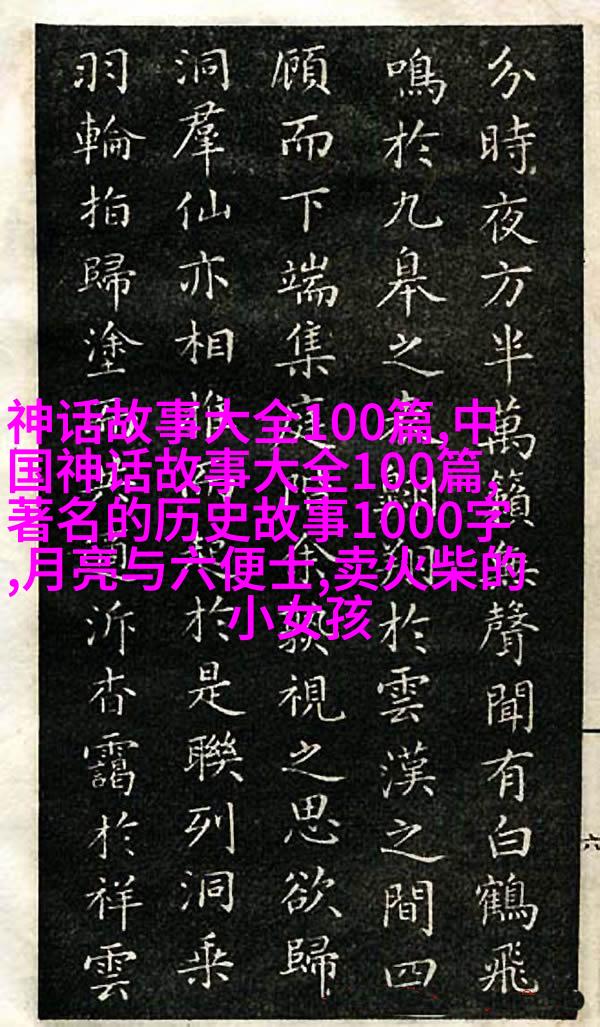 分時夜方半萬籟無聲聞有白鶴飛
鳴於九皋之翔於雲漢之間四
顧而下端集庭余孰視之思欲歸
洞羣仙亦相推於是聯列洞乘
羽輪拍歸塗泝杳靄於祥雲
神话故事大全100篇,中
国神话故事大全100篇,
著名的历史故事1000字
,月亮与六便士,卖火柴的
小女孩
六